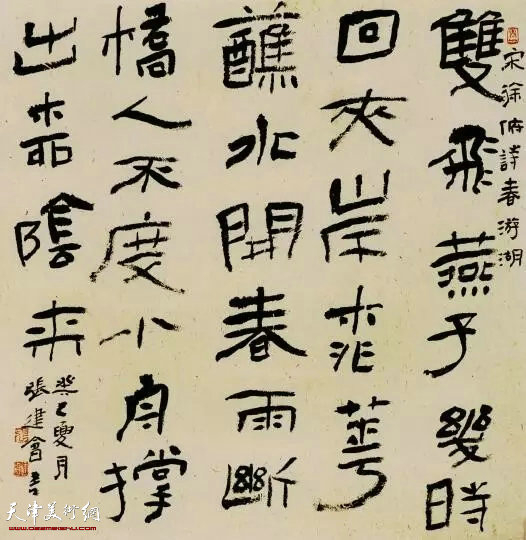 宋徐俯詩春游湖
雙飛燕子幾時
回夾岸桃華
蘸水開春雨斷
橋人不度小舟撑
出柳陰來
癸巳夏月
張建會書
天津美術網